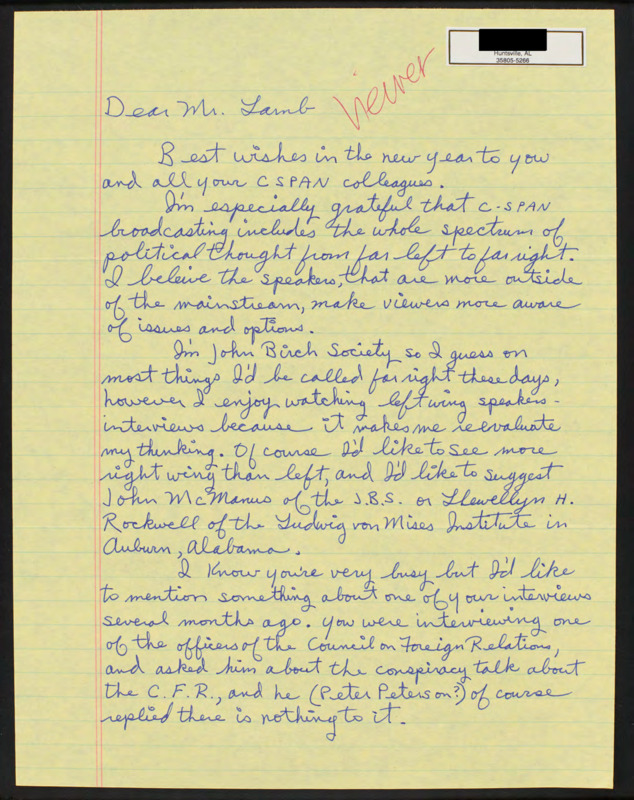 Huntsville, AL
35805-5266
Viewer
Dear Mr. Lamb
Best wishes in the new year to you
and all your CSPAN colleagues.
I'm especially grateful that C-SPAN
broadcasting includes the whole spectrum of
political thought from far left to far right.
I beleive the speakers, that are more outside
of the mainstream, make viewers more aware
of issues and options.
I'm John Birch Society so I guess on
most things I'd be called far right these days,
however I enjoy watching left wing speakers -
interviews because it makes me reevaluate
my thinking. Of course I'd like to see more
right wing than left, and I'd like to suggest
John McManus of the J.B.S. or Llewellyn H.
Rockwell of the Ludwig von Mises Institute in
Auburn, Alabama.
I know you're very busy but I'd like
to mention something about one of your interviews
several months ago. you were interviewing one
of the officers of the Council on Foreign Relations,
and asked him about the conspiracy talk about
the C.F.R., and he (Peter Peterson?) of course
replied there is nothing to it.